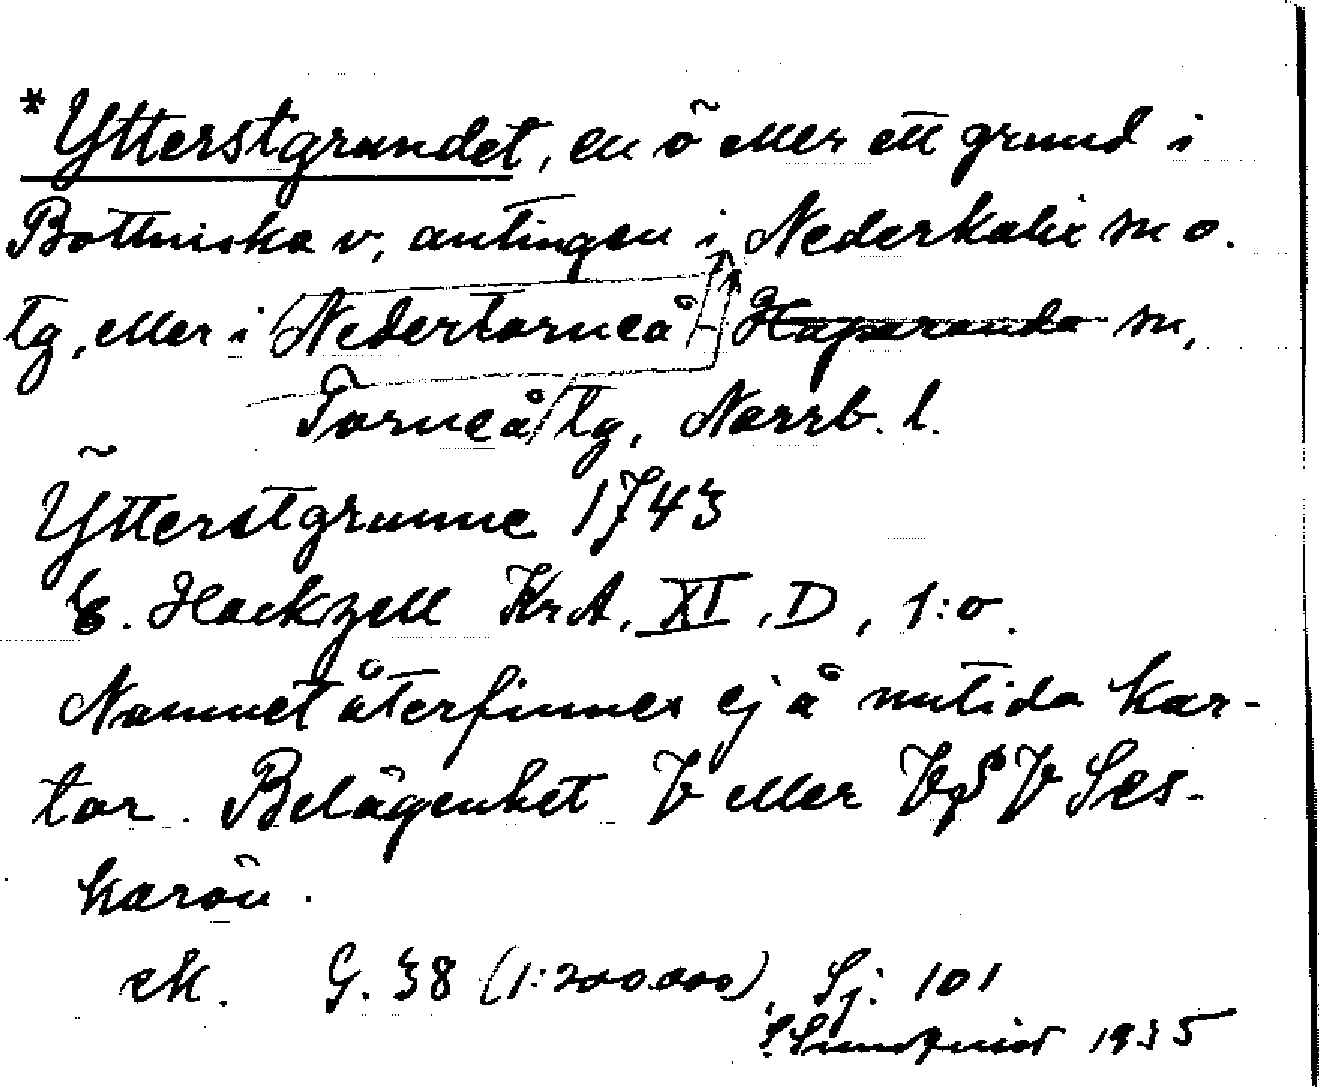 *Ytterstgrundet, en ö eller ett grund i
Bottniska v, antingen i Nederkalix sn o.
tg, eller i Nedertorneå - Haparanda sn,
Torneå tg, Norrb. l.
Ytterstgrunne 1743
E. Hackzell KrA, XI, D, 1:o.
Namnet återfinnes ej å nutida kar-
tor. Belägenhet V eller VSV Ses-
karön.
ek. G. 38 (1:200.000), Sj. 101
Sundqvist 1935